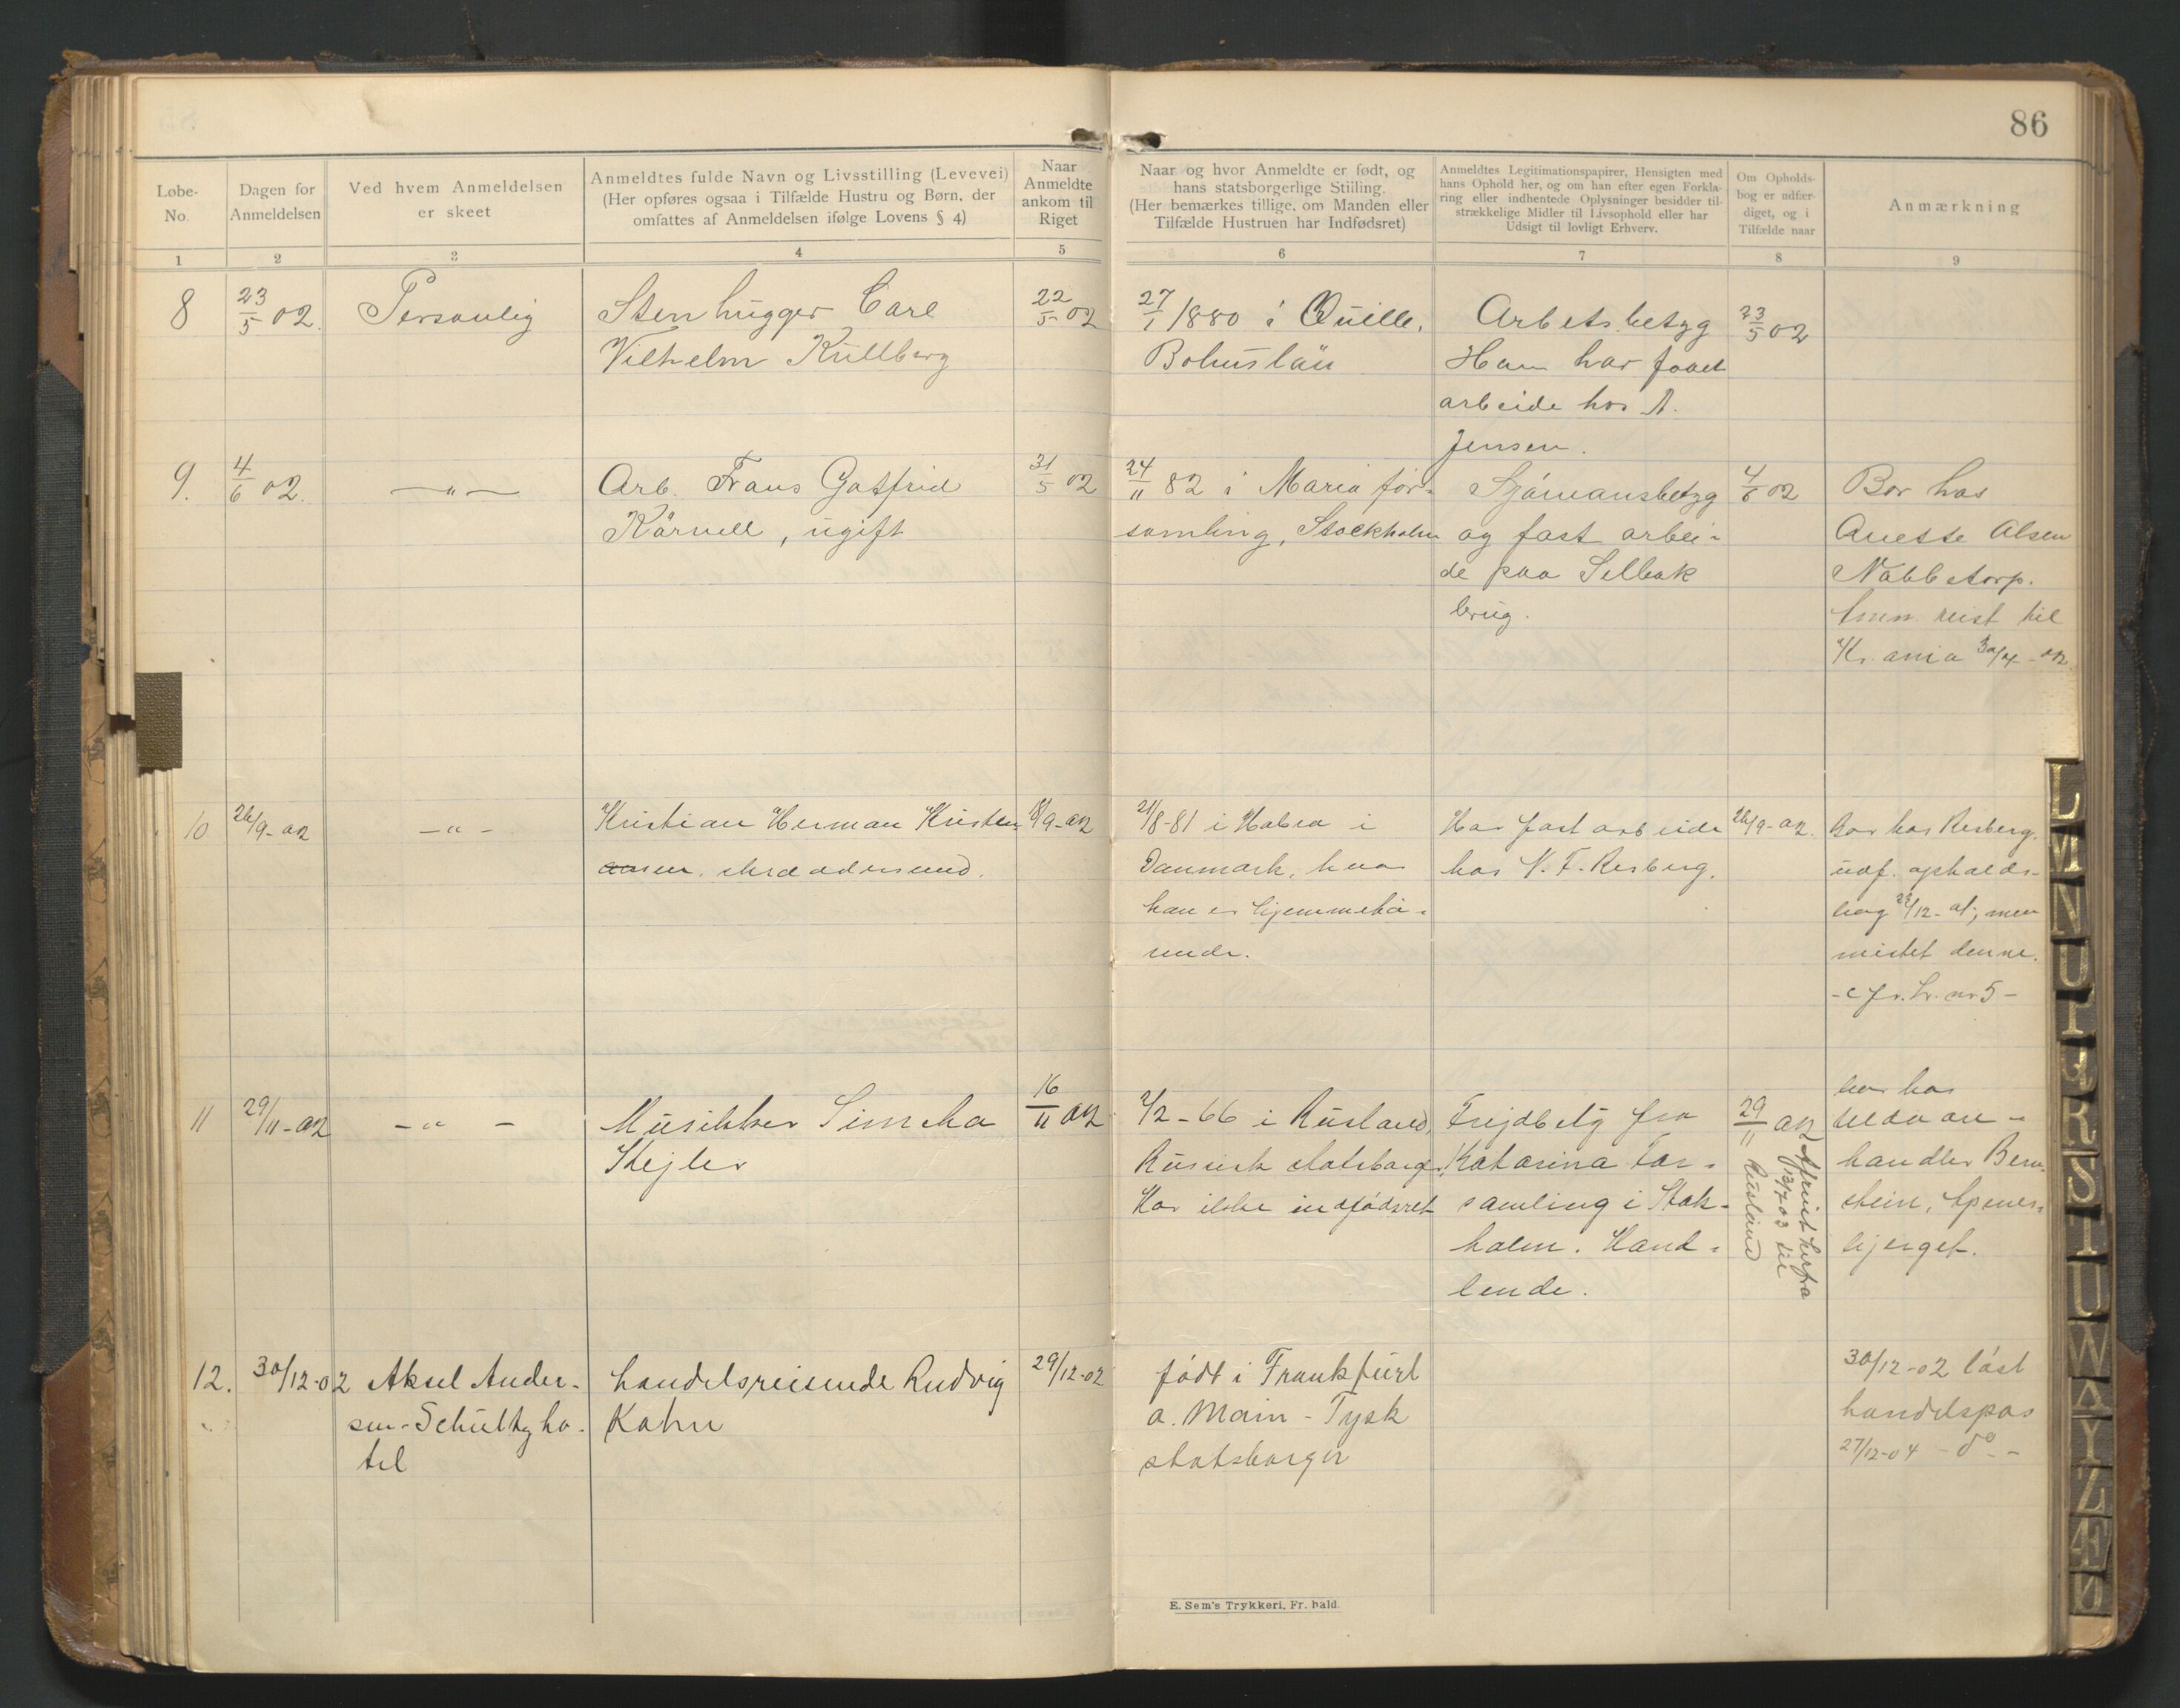 86
Løbe-
No.
Dagen for
Anmeldelsen
Ved hvem Anmeldelsen
er skeet
Anmeldtes fulde Navn og Livsstilling (Levevei)
(Her opføres ogsaa i Tilfælde Hustru og Børn, der
omfattes af Anmeldelsen ifølge Lovens § 4)
Naar
Anmeldte
ankom til
Riget
Naar og hvor Anmeldte er født, og
hans statsborgerlige Stilling.
(Her bemærkes tillige, om Manden eller
Tilfælde Hustruen har Indfødsret)
Anmeldtes Legitimationspapirer, Hensigten med
hans Ophold her, og om han efter egen Forkla-
ring eller indhentede Oplysninger besidder til-
strækkelige Midler til Livsophold eller har
Udsigt til lovligt Erhverv.
Om Opholds-
bog er udfær-
diget, og i
Tilfælde naar
Anmærkning
1 2 3 4 5 6 7 8 9
8
23/5 02.
Personlig
Stenhugger Carl
Vilhelm Kullberg
22/5 02
27/1 1880 i Quille,
Bohuslän
Arbetsbetyg
Han har faaet
arbeide hos A.
Jensen.
23/5 02
9.
4/6 02.
— " —
Arb. Frans Gotfrid
Kärnell, ugift
31/5 02
24/11 82 i Maria för-
samling, Stockholm
Sjömansbetyg
og fast arbei-
de paa Selbak
brug.
4/6 02
Bor hos
Anette Olsen
Nabbetorp.
reist til
Kr.ania
10
26/9-02
— " —
Kristian Herman Kristen-
sen, skræddersvend.
18/9-02
21/8-81 i Hobro i
Danmark, hvor
han er hjemmehø-
rende.
Har fast arbeide
hos N. F. Resberg.
26/9-02.
Bor hos Resberg.
udf. opholds-
bog 23/12-01, men
mistet denne.
- cfr. L. nr 5 -
11
29/11-02
— " —
Musikker Simcha
Kejler
16/11 02
2/2-66 i Rusland,
Russisk statsborger.
Har ikke indfødsret
Frejdbetyg fra
Katarina För-
samling i Stok-
holm. Hand-
lende.
29/11 02
Afreist herfra
13/7 03 til
Rusland
bor hos
handler Bern-
stein,
bjerget.
12.
30/12-02
Aksel Ander-
sen - Schultz ho-
tel
handelsreisende Ludvig
Kahn
29/12-02
født i Frankfurt
a. Main - Tysk
statsborger
30/12-02 løst
handelspas
27/12-04 - do -
E. Sem's Trykkeri, Fr.hald.
L
M
N
O
P
Q
R
S
T
U
W
A
Y
Z
Æ
Ø